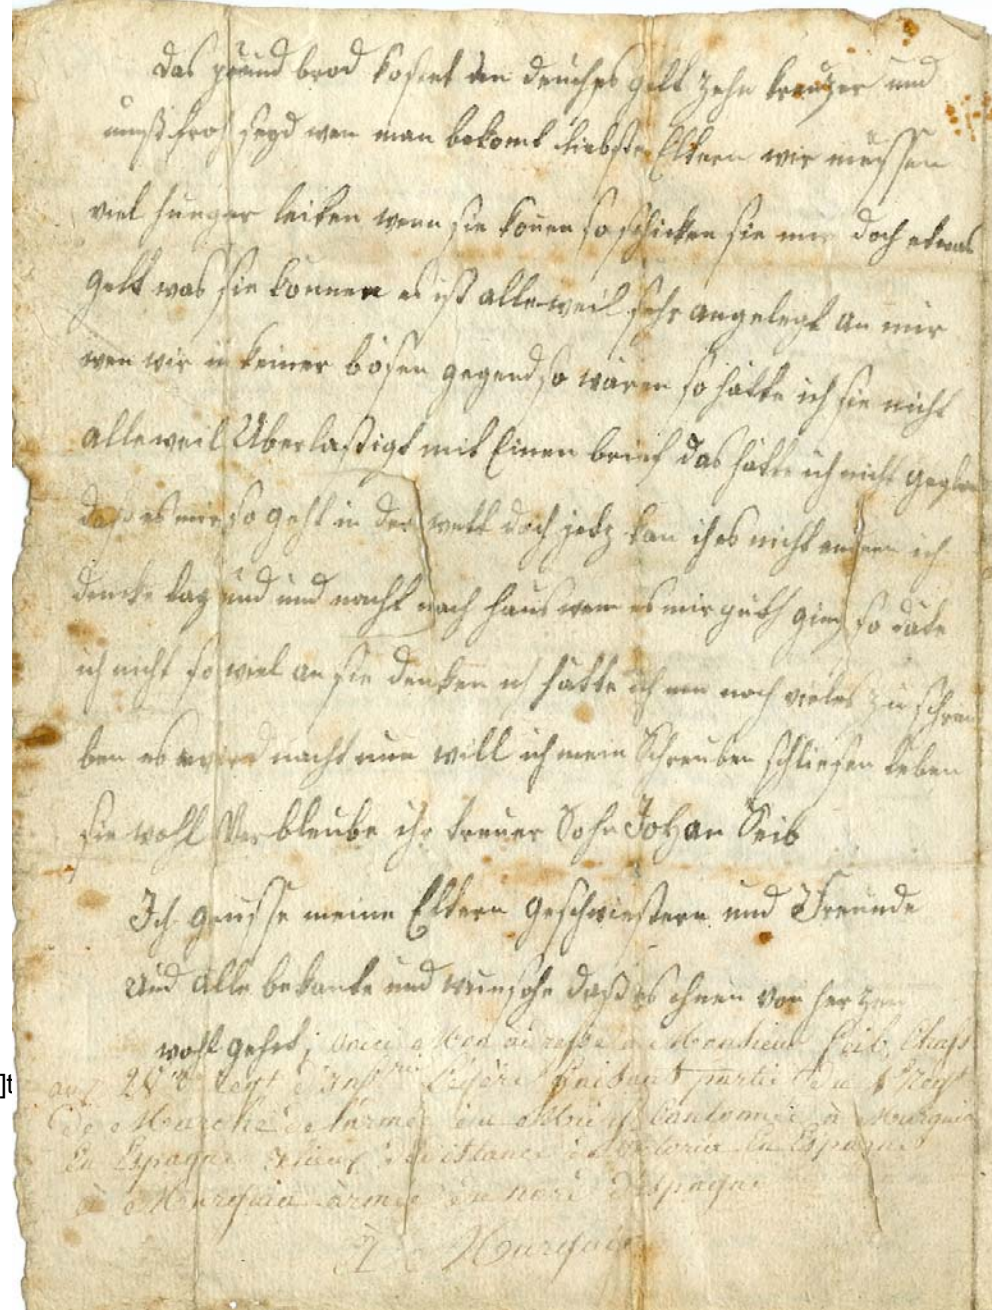 das pfund brod kostet in deuches gelt zehn kreuzer und
muß froh seyd wen man bekomt liebste Eltern wir müssen
viel hunger leiten wenn sie könen so schicken sie mir doch etwas
gelt was sie können es ist alleweil sehr angelegt an mir
wen wir in keiner bösen gegend so wären so hätte ich sie nicht
alleweil Uberlastigt mit Einen brief das hätte ich nicht geglau
daß es mir so geht in der welt doch jetz kan ich es nicht endern ich
dencke tag und und nacht nach haus wen es mir guth ging so däte
ich nicht so viel an sie dencken ich hätte ihnen noch vieles zu schreu
ben es wird nacht nun will ich mein Schreuben schliesen leben
sie wohl Verbleube ihr treuer Sohn Johan Seib
Ich grusse meine Eltern geschwiestern und Freunde
und alle bekante und wunsche daß es ihnen von herzen
wohl gehet; voici Mon adresse a Monsieur Seib, Chass
au Regt d'Infrie légère faisant partie du Regt
de Marche de l'armée du cantonné à
En Espagne lieux distance de Victoria En Espagne
à armée du nord d'Espagne
à
]t